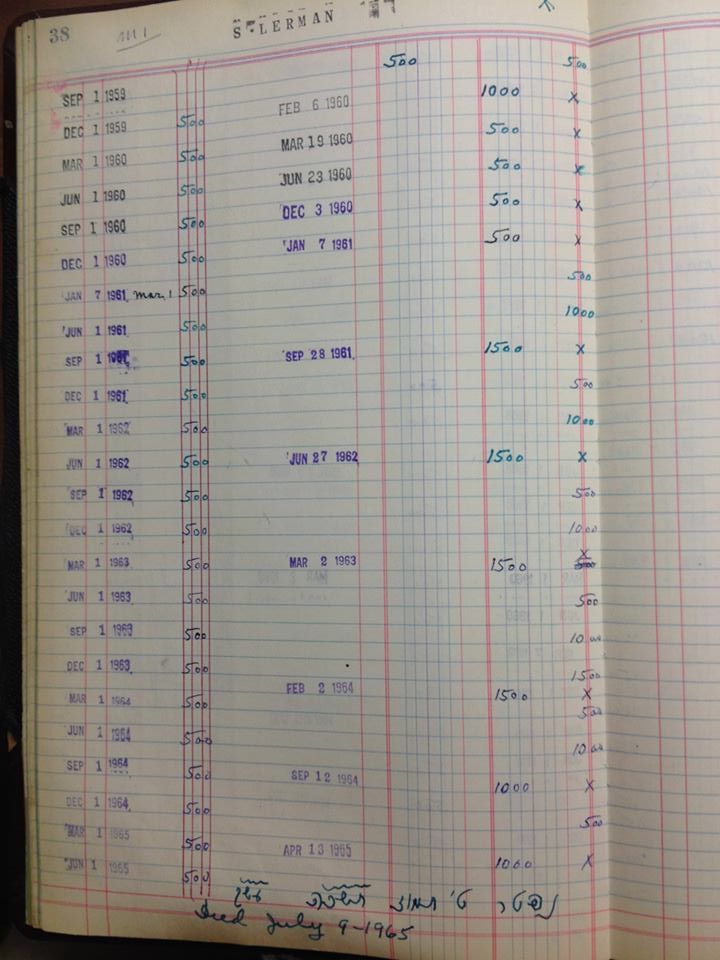 38 S. LERMAN
500 500
SEP 1 1959
DEC 1 1959 500 FEB 6 1960 1000 X
MAR 1 1960 500 MAR 19 1960 500 X
JUN 1 1960 500 JUN 23 1960 500 X
SEP 1 1960 500 DEC 3 1960 500 X
DEC 1 1960 500 JAN 7 1961 500 X
JAN 7 1961 Mar. 1 500 500
JUN 1 1961 500 1000
SEP 1 500 SEP 28 1961 1500 X
DEC 1 1961 500 500
MAR 1 1962 500 1000
JUN 1 1962 500 JUN 27 1962 1500 X
SEP 1 1962 500 500
DEC 1 1962 500 1000
MAR 1 1963 500 MAR 2 1963 1500 X
JUN 1 1963 500 500
SEP 1 1963 500 1000
DEC 1 1963 500 1500
MAR 1 1964 500 FEB 2 1964 1500 X
JUN 1 1964 500 500
SEP 1 1964 500 1000
DEC 1 1964 500 SEP 12 1964 1000 X
MAR 1 1965 500 500
JUN 1 1965 500 APR 13 1965 1000 X
Died July 9-1965